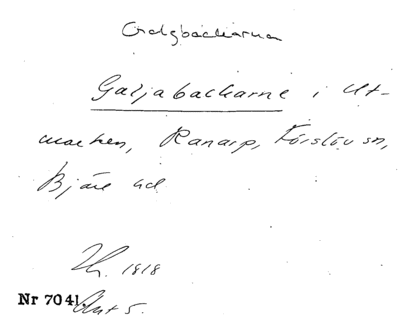 Galgbackarna
Galjabackarne i Ut-
marken, Ranarp, Förslöv sn,
Bjäre hd
1818
Nr 7041. Akt 5.